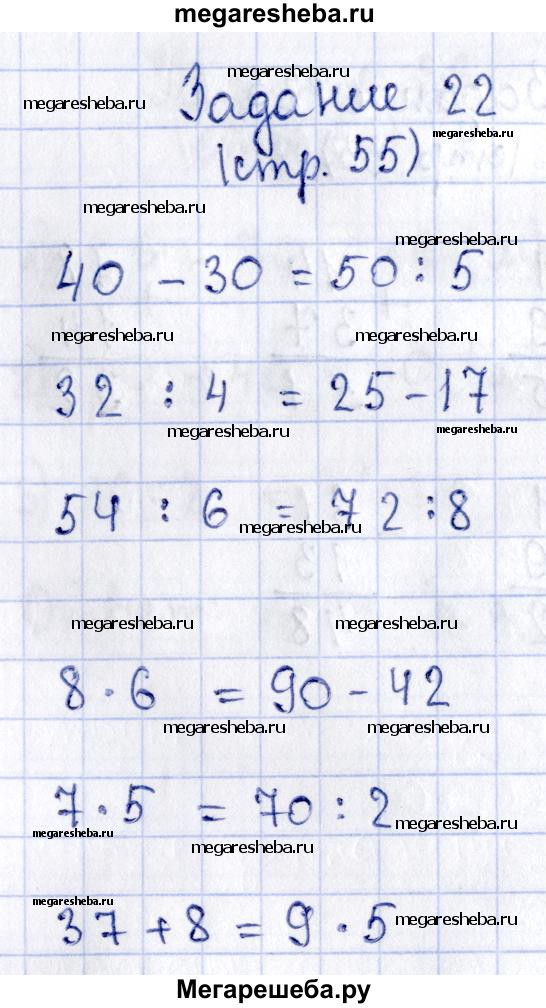 megaresheba.ru
megaresheba.ru
megaresheba.ru
Задание 22
megaresheba.ru
(стр. 55)
megaresheba.ru
megaresheba.ru
40 - 30 = 50 : 5
megaresheba.ru megaresheba.ru
32 : 4 = 25 - 17
megaresheba.ru megaresheba.ru
54 : 6 = 72 : 8
megaresheba.ru
megaresheba.ru megaresheba.ru
8 · 6 = 90 - 42
megaresheba.ru megaresheba.ru
7 · 5 = 70 : 2
megaresheba.ru megaresheba.ru
megaresheba.ru
megaresheba.ru
37 + 8 = 9 · 5
megaresheba.ru
Мегарешеба.ру